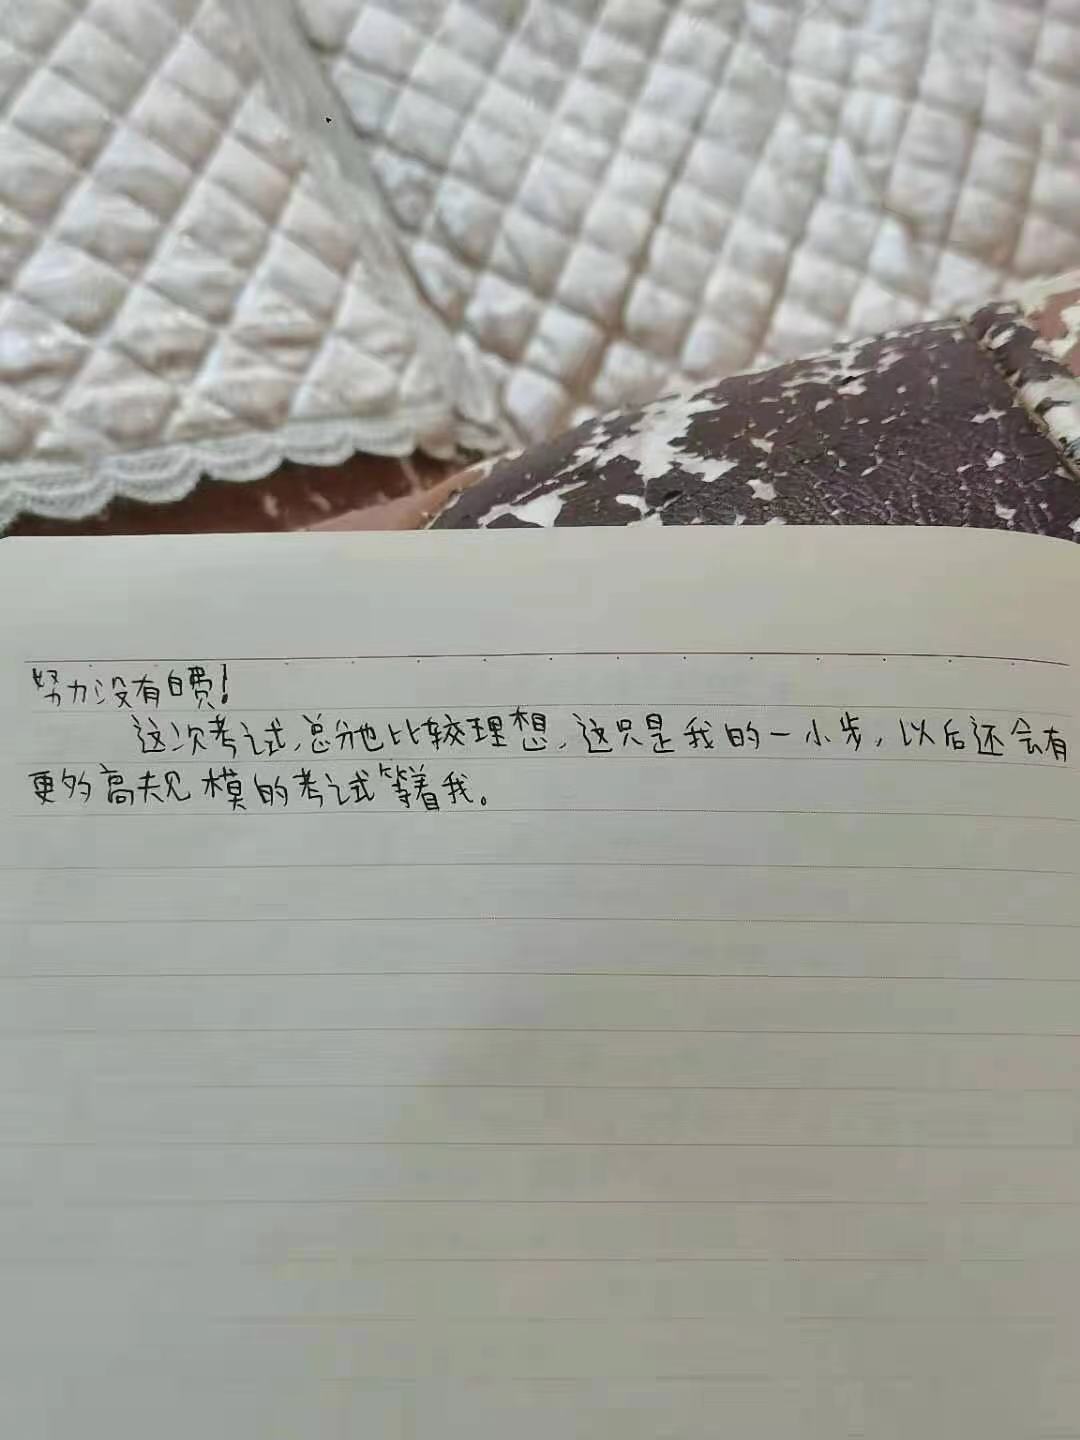 努力没有白费!
这次考试,总分也比较理想,这只是我的一小步,以后还会有
更多高规模的考试等着我。